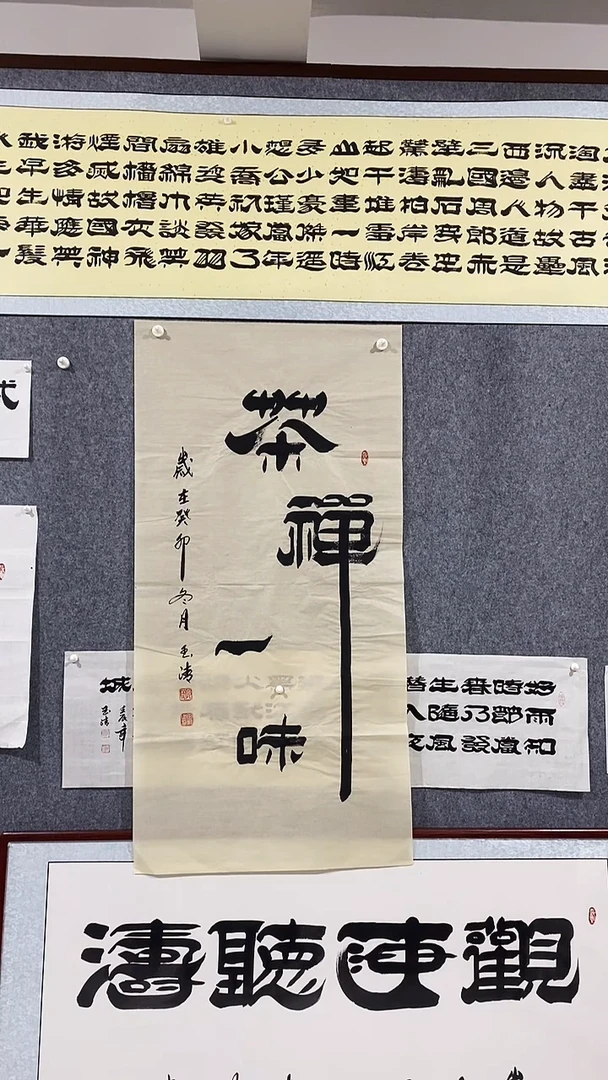 淘盡千古風
流人物故壘
西邊人道是
三國周郎赤
壁亂石穿空
驚濤拍岸卷
起千堆雪江
山如畫一時
多少豪傑遙
想公瑾當年
小喬初嫁了
雄姿英發羽
扇綸巾談笑
間檣櫓灰飛
煙滅故國神
游多情應笑
我早生華髮
茶禪一味
歲在癸卯冬月
好雨知
時節當
春乃發
生隨風
潛入夜
城
觀海聽濤